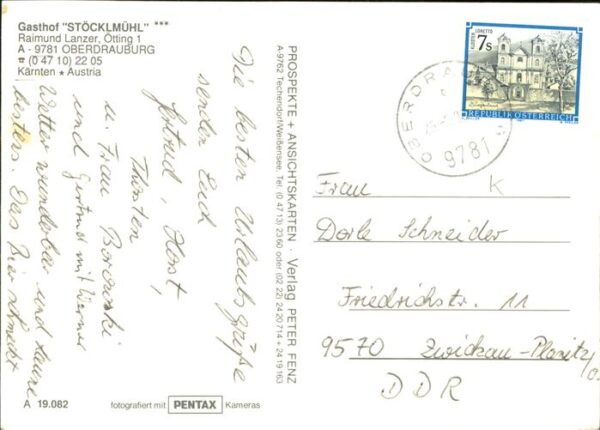 Gasthof "STÖCKLMÜHL" ***
Raimund Lanzer, Ötting 1
A - 9781 OBERDRAUBURG
☎ (0 47 10) 22 05
Kärnten ★ Austria
Die besten Urlaubsgrüße
senden Euch
Gertrud, Horst,
Thorsten
u. Frau Borowski
und Gertrud mit Werner
Wetter wunderbar und Laune
bestens. Das Bier schmeckt
A 19.082
fotografiert mit PENTAX Kameras
PROSPEKTE + ANSICHTSKARTEN · Verlag PETER FENZ
A-9762 Techendorf/Weißensee, Tel. (0 47 13) 23 60 oder (02 22) 24 20 714 + 24 19 163
LORETTO
7 S
REPUBLIK ÖSTERREICH
9781
K
Frau
Dorle Schneider
Friedrichstr. 11
9570 Zwickau-Planitz
DDR